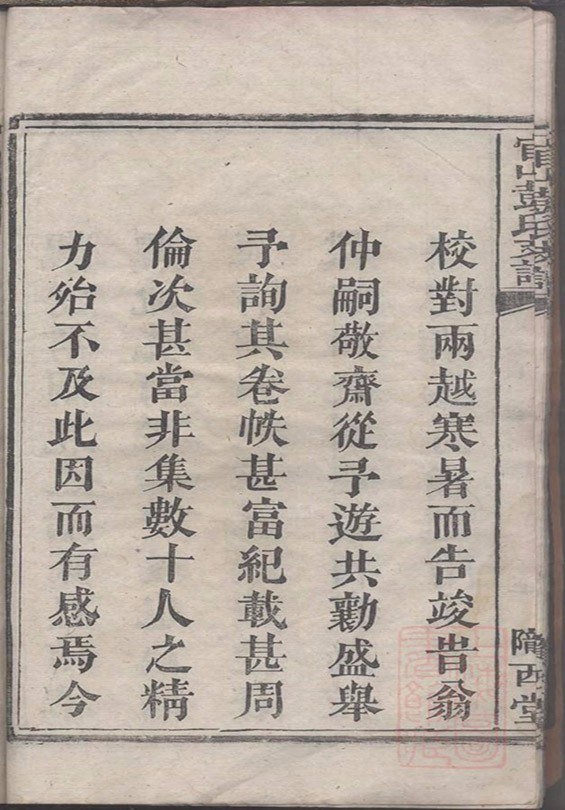 官山彭氏族譜
隴西堂
校對兩越寒暑而告竣旹翁
仲嗣敬齋從予遊共勷盛舉
予詢其卷帙甚富紀載甚周
倫次甚當非集數十人之精
力殆不及此因而有感焉今